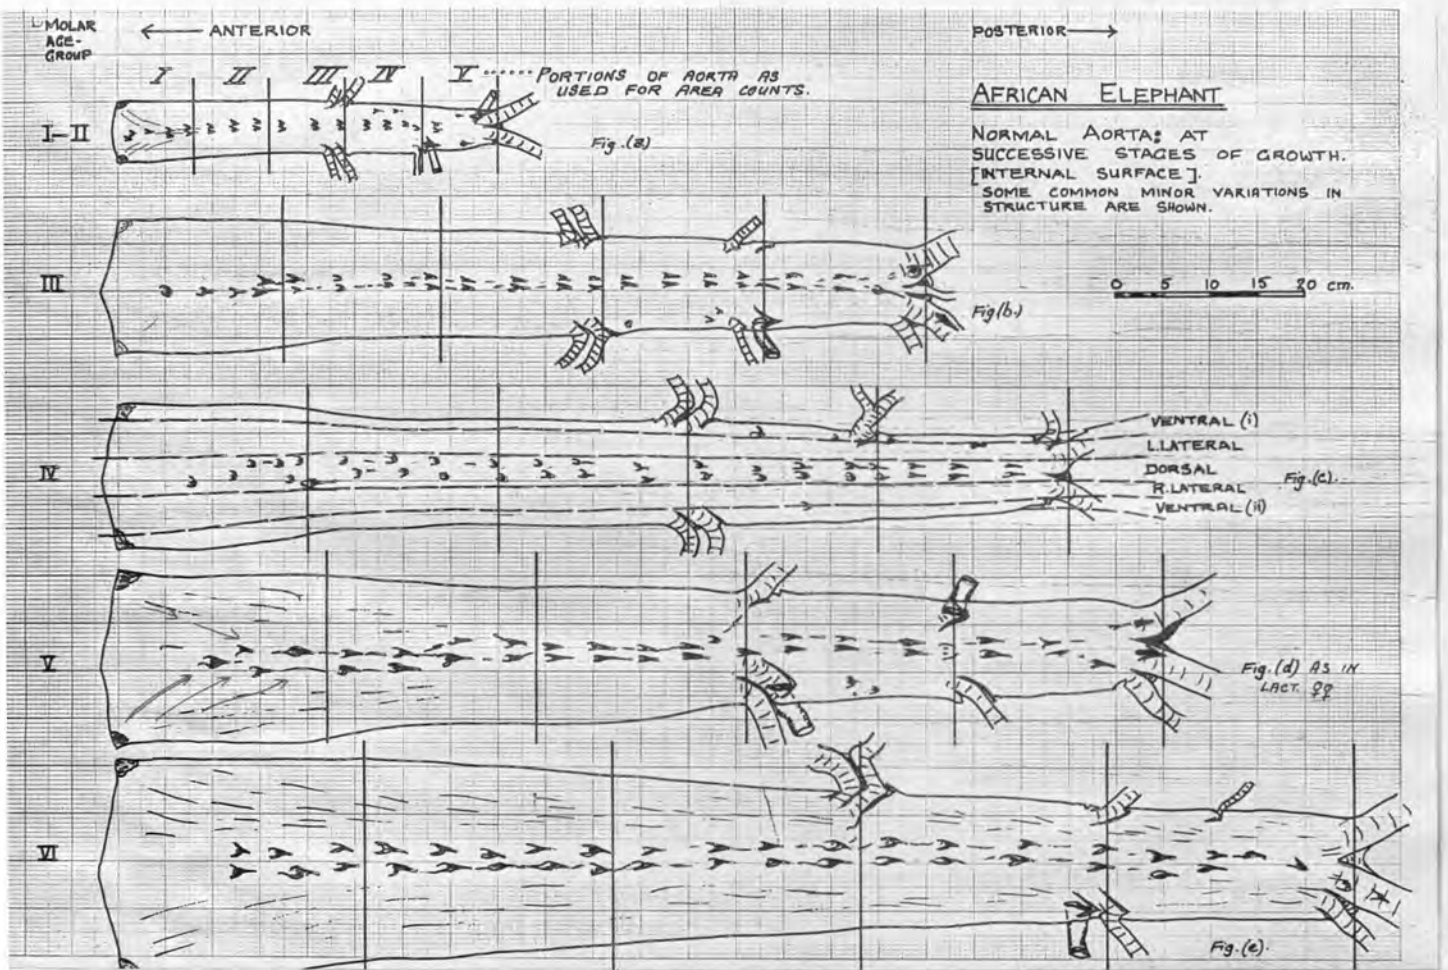 MOLAR
AGE-
GROUP
← ANTERIOR
POSTERIOR →
I II III IV V ...... PORTIONS OF AORTA AS
USED FOR AREA COUNTS.
I–II
Fig.(a)
AFRICAN ELEPHANT
NORMAL AORTA: AT
SUCCESSIVE STAGES OF GROWTH.
[INTERNAL SURFACE].
SOME COMMON MINOR VARIATIONS IN
STRUCTURE ARE SHOWN.
0 5 10 15 20 cm.
III
Fig(b.)
IV
VENTRAL (i)
L.LATERAL
DORSAL
R.LATERAL
VENTRAL (ii)
Fig.(c).
V
Fig.(d) AS IN
LACT. ♀♀
VI
Fig.(e).